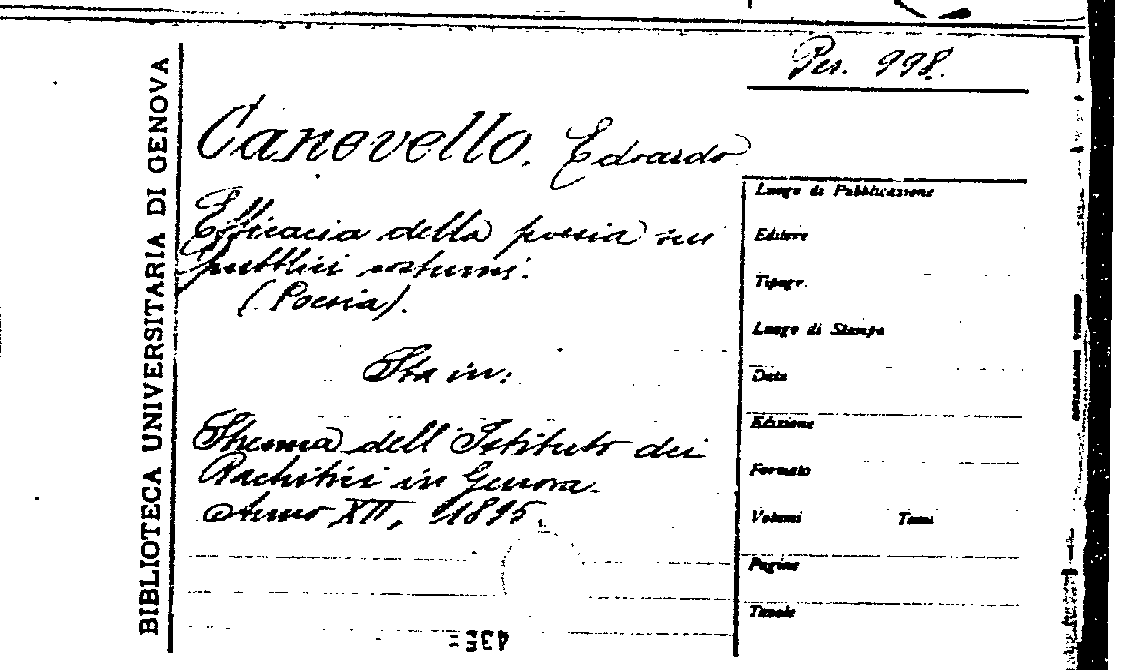 Per. 998.
BIBLIOTECA UNIVERSITARIA DI GENOVA
Canevello, Edoardo
Efficacia della poesia sui
pubblici costumi.
(Poesia).
Sta in:
Strenna dell'Istituto dei
Rachitici in Genova.
Anno XII, 1895.
Luogo di Pubblicazione
Editore
Tipogr.
Luogo di Stampa
Data
Edizione
Formato
Volumi Tomi
Pagine
Tavole